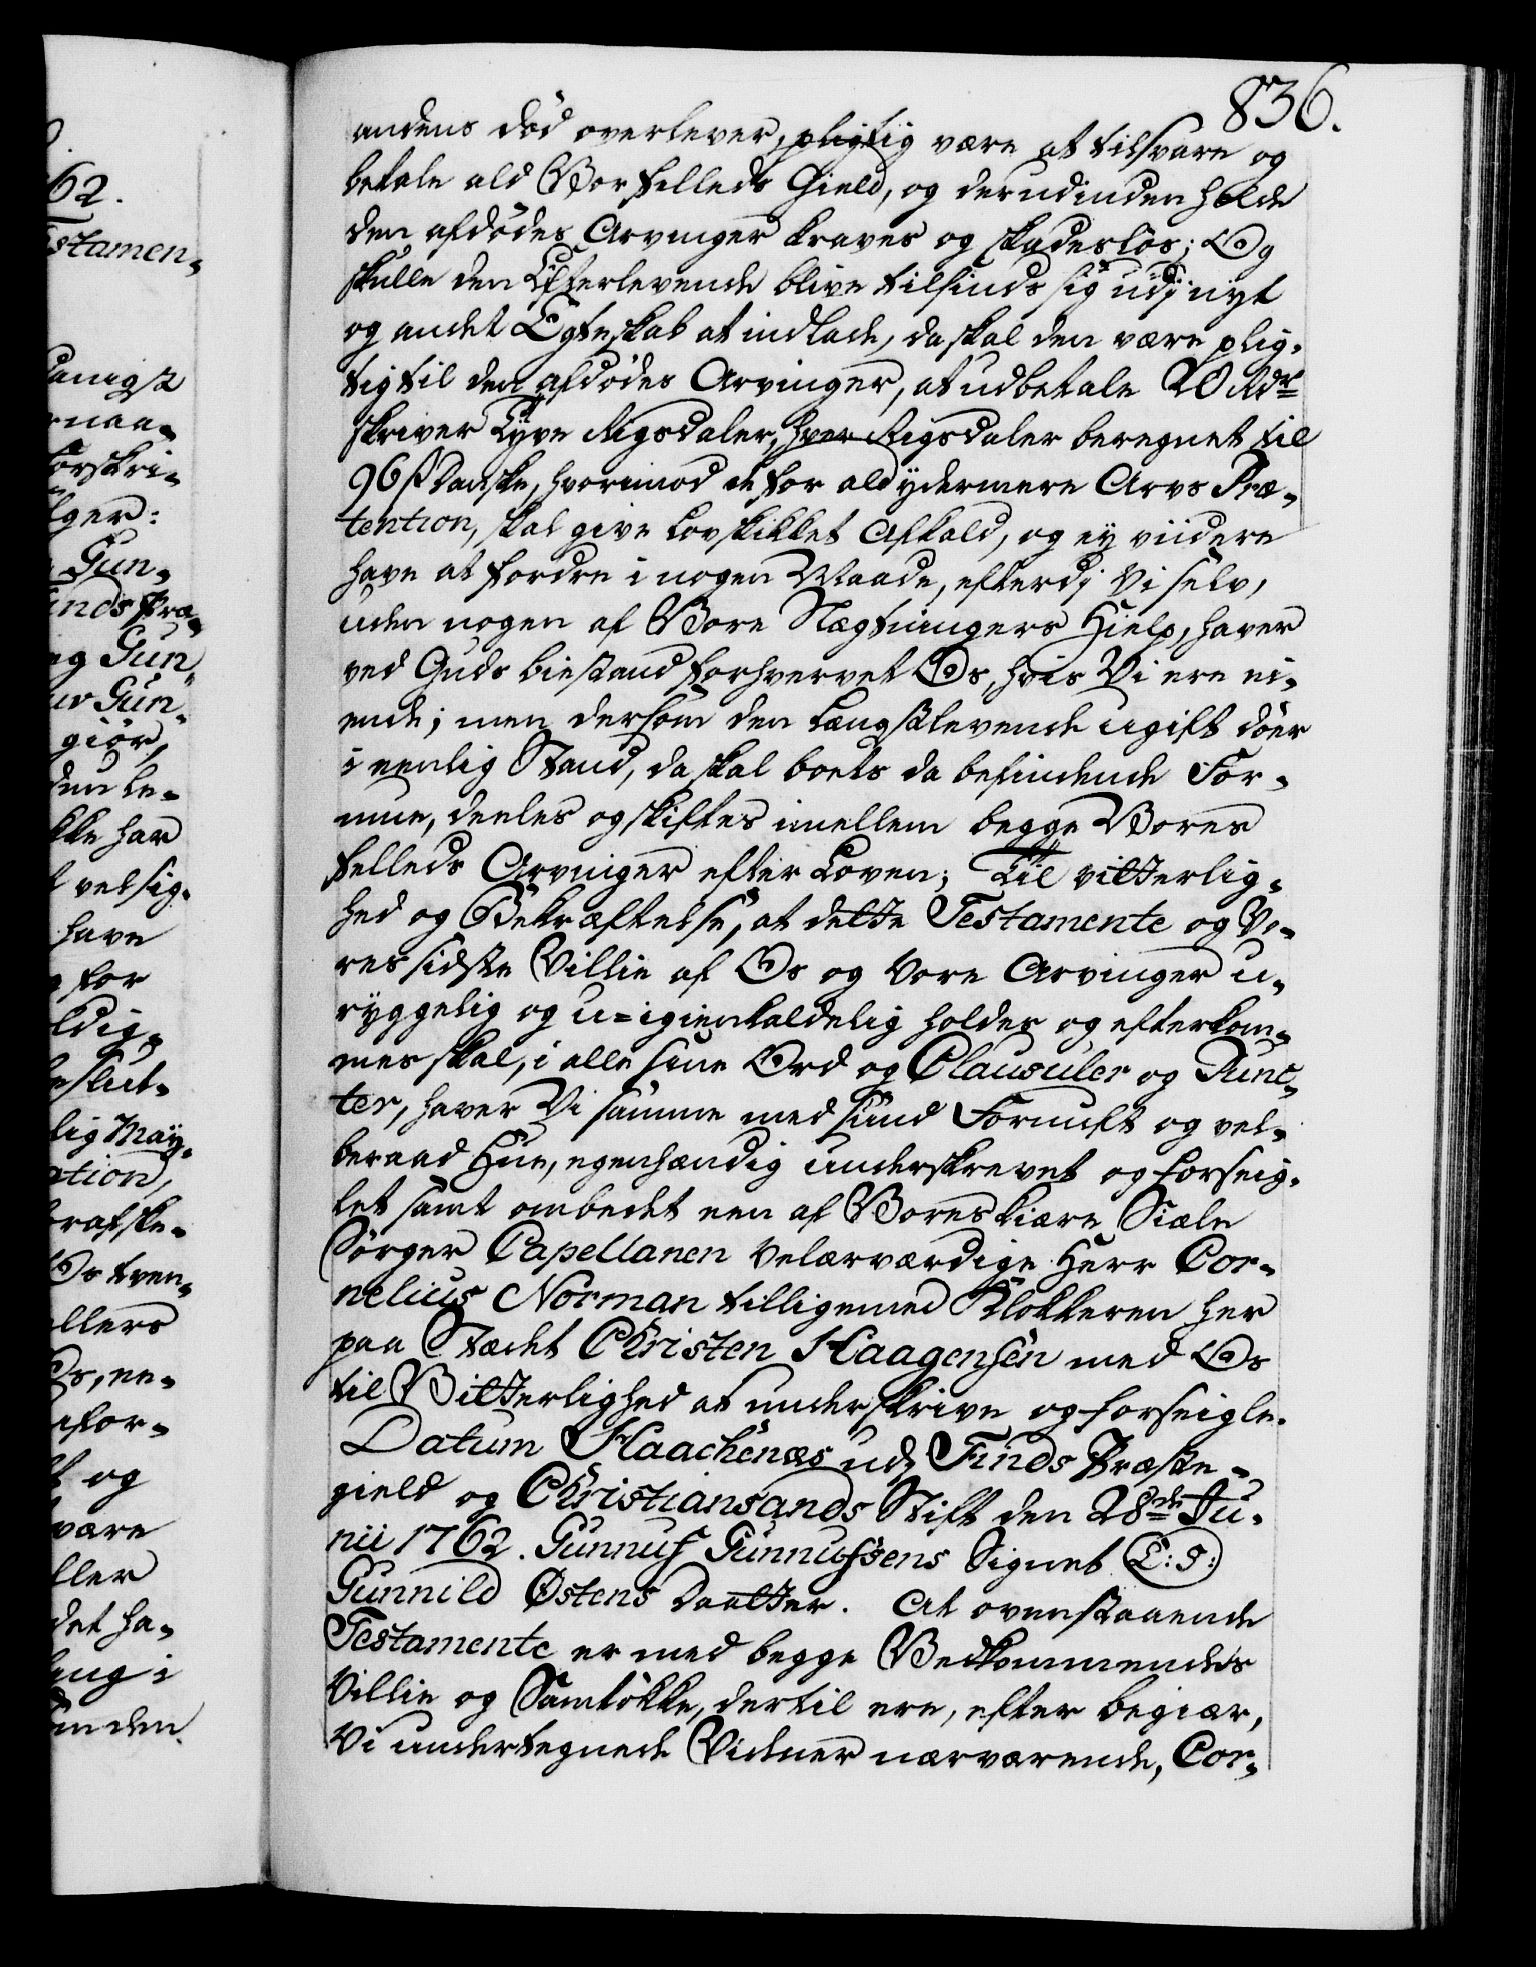 836.
andens død overlever, pligtig være at tilsvare og
betale ald Vor fælleds Gield, og derudinden holde
den afdødes Arvinger kravesløs og skadesløs; Og
skulle den Efterlevende blive tilsinds sig udj nyt
og andet Egteskab at indlade, da skal den være plig-
tig til den afdødes Arvinger, at udbetale 20 Rdr
skriver Tyve Rigsdaler, hver Rigsdaler beregnet til
96 s Danske, hvorimod de for ald ydermere Arvs Præ-
tention, skal give Lovskikket Afkald, og ey viidere
have at fordre i nogen Maade, efterdj Vi selv,
uden nogen af Vore Slægtningers Hielp, haver
ved Guds biestand forhvervet Os, hvis Vi ere ei-
ende; men dersom den Længstlevende ugift döer
i eenlig Stand, da skal boets da befindende For-
mue, deeles og skiftes imellem begge Vores
fælleds Arvinger efter Loven; Til vitterlig-
hed og Bekræftelse, at dette Testamente og Vo-
res sidste Villie af Os og Vore Arvinger u-
ryggelig og u=igienkaldelig holdes og efterkom-
mes skal, i alle sine Ord og Clausuler og Punc-
ter, haver Vi samme med sund Fornuft og vel-
beraad Hue, egenhændig underskrevet og forseig-
let samt ombedet een af Vores kiære Siæle
Sörger Capellanen Velærværdige Herr Cor-
nelius Norman tilligemed Klokkeren her
paa Stædet Christen Haagensen med Os
til Vitterlighed at underskrive og forseigle.
Datum Haachenæs udj Finds Præste-
gield og Christiansands Stift den 28de Ju-
nii 1762. Gunnuf Gunnufsens Signet (L: S:)
Gunnild Østens Daatter. At ovenstaaende
Testamente er med begge Vedkommendes
Villie og Samtökke, dertil ere, efter begiær,
Vi undertegnede Vidner nærværende, Cor-
62.
stamen-
naa-
forskri-
lger:
Gun-
inds Præ-
eg Gun-
uv Gun-
giör,
kke har
vel sig-
have
for
ldig-
beslut-
lig May-
ation,
Os tven-
ellers
Os, ne-
og
være
ller
det ha-
eng i
den